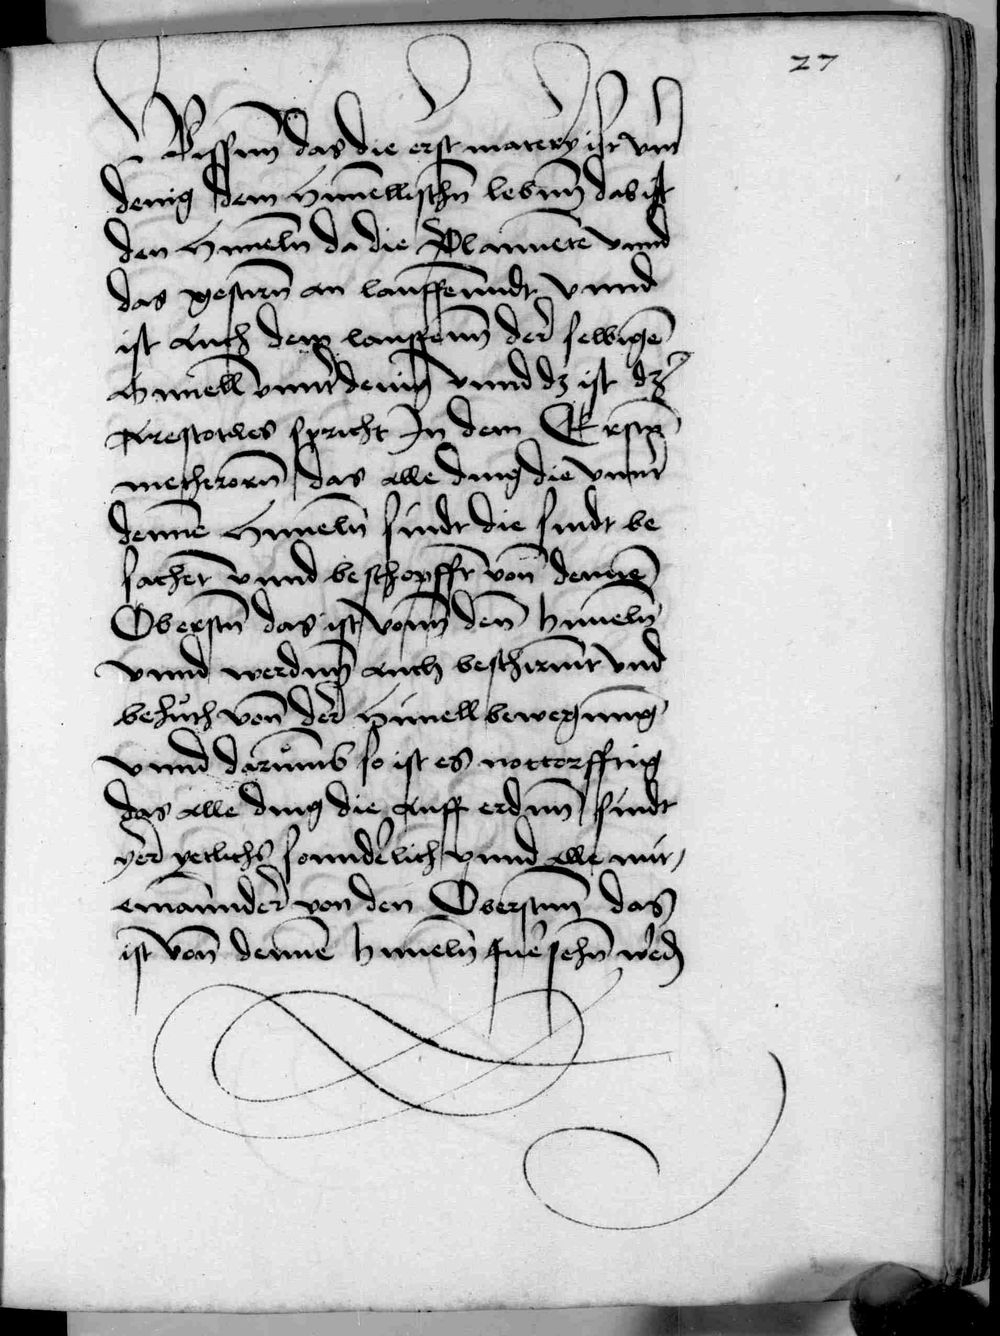 27
Wissenn das die erst matery ist vnd
denig dem Himellischn lebenn das ist
den Himeln da die Planneten vnnd
das gestirn an lauffenndt vnnd
ist auch dem lauffenn der selbigen
Himell vnnderdenig vnnd dz ist dz
Arestotiles spricht In dem Ersten
metherorn das alle ding die vnnder
denne Himeln sindt die sindt be
sachet vnnd beschopfft von denne
Oberstn das ist vonn den himeln
vnnd werdenn auch beschirmt vnd
behuth von der Himell bewegung
vnnd darumb so ist es nottorfftig
das alle ding die auff erdenn sindt
yedr yetlichs sonnderlich vnnd alle mit
einannder von den Oberstenn das
ist von denne himeln sehn werd